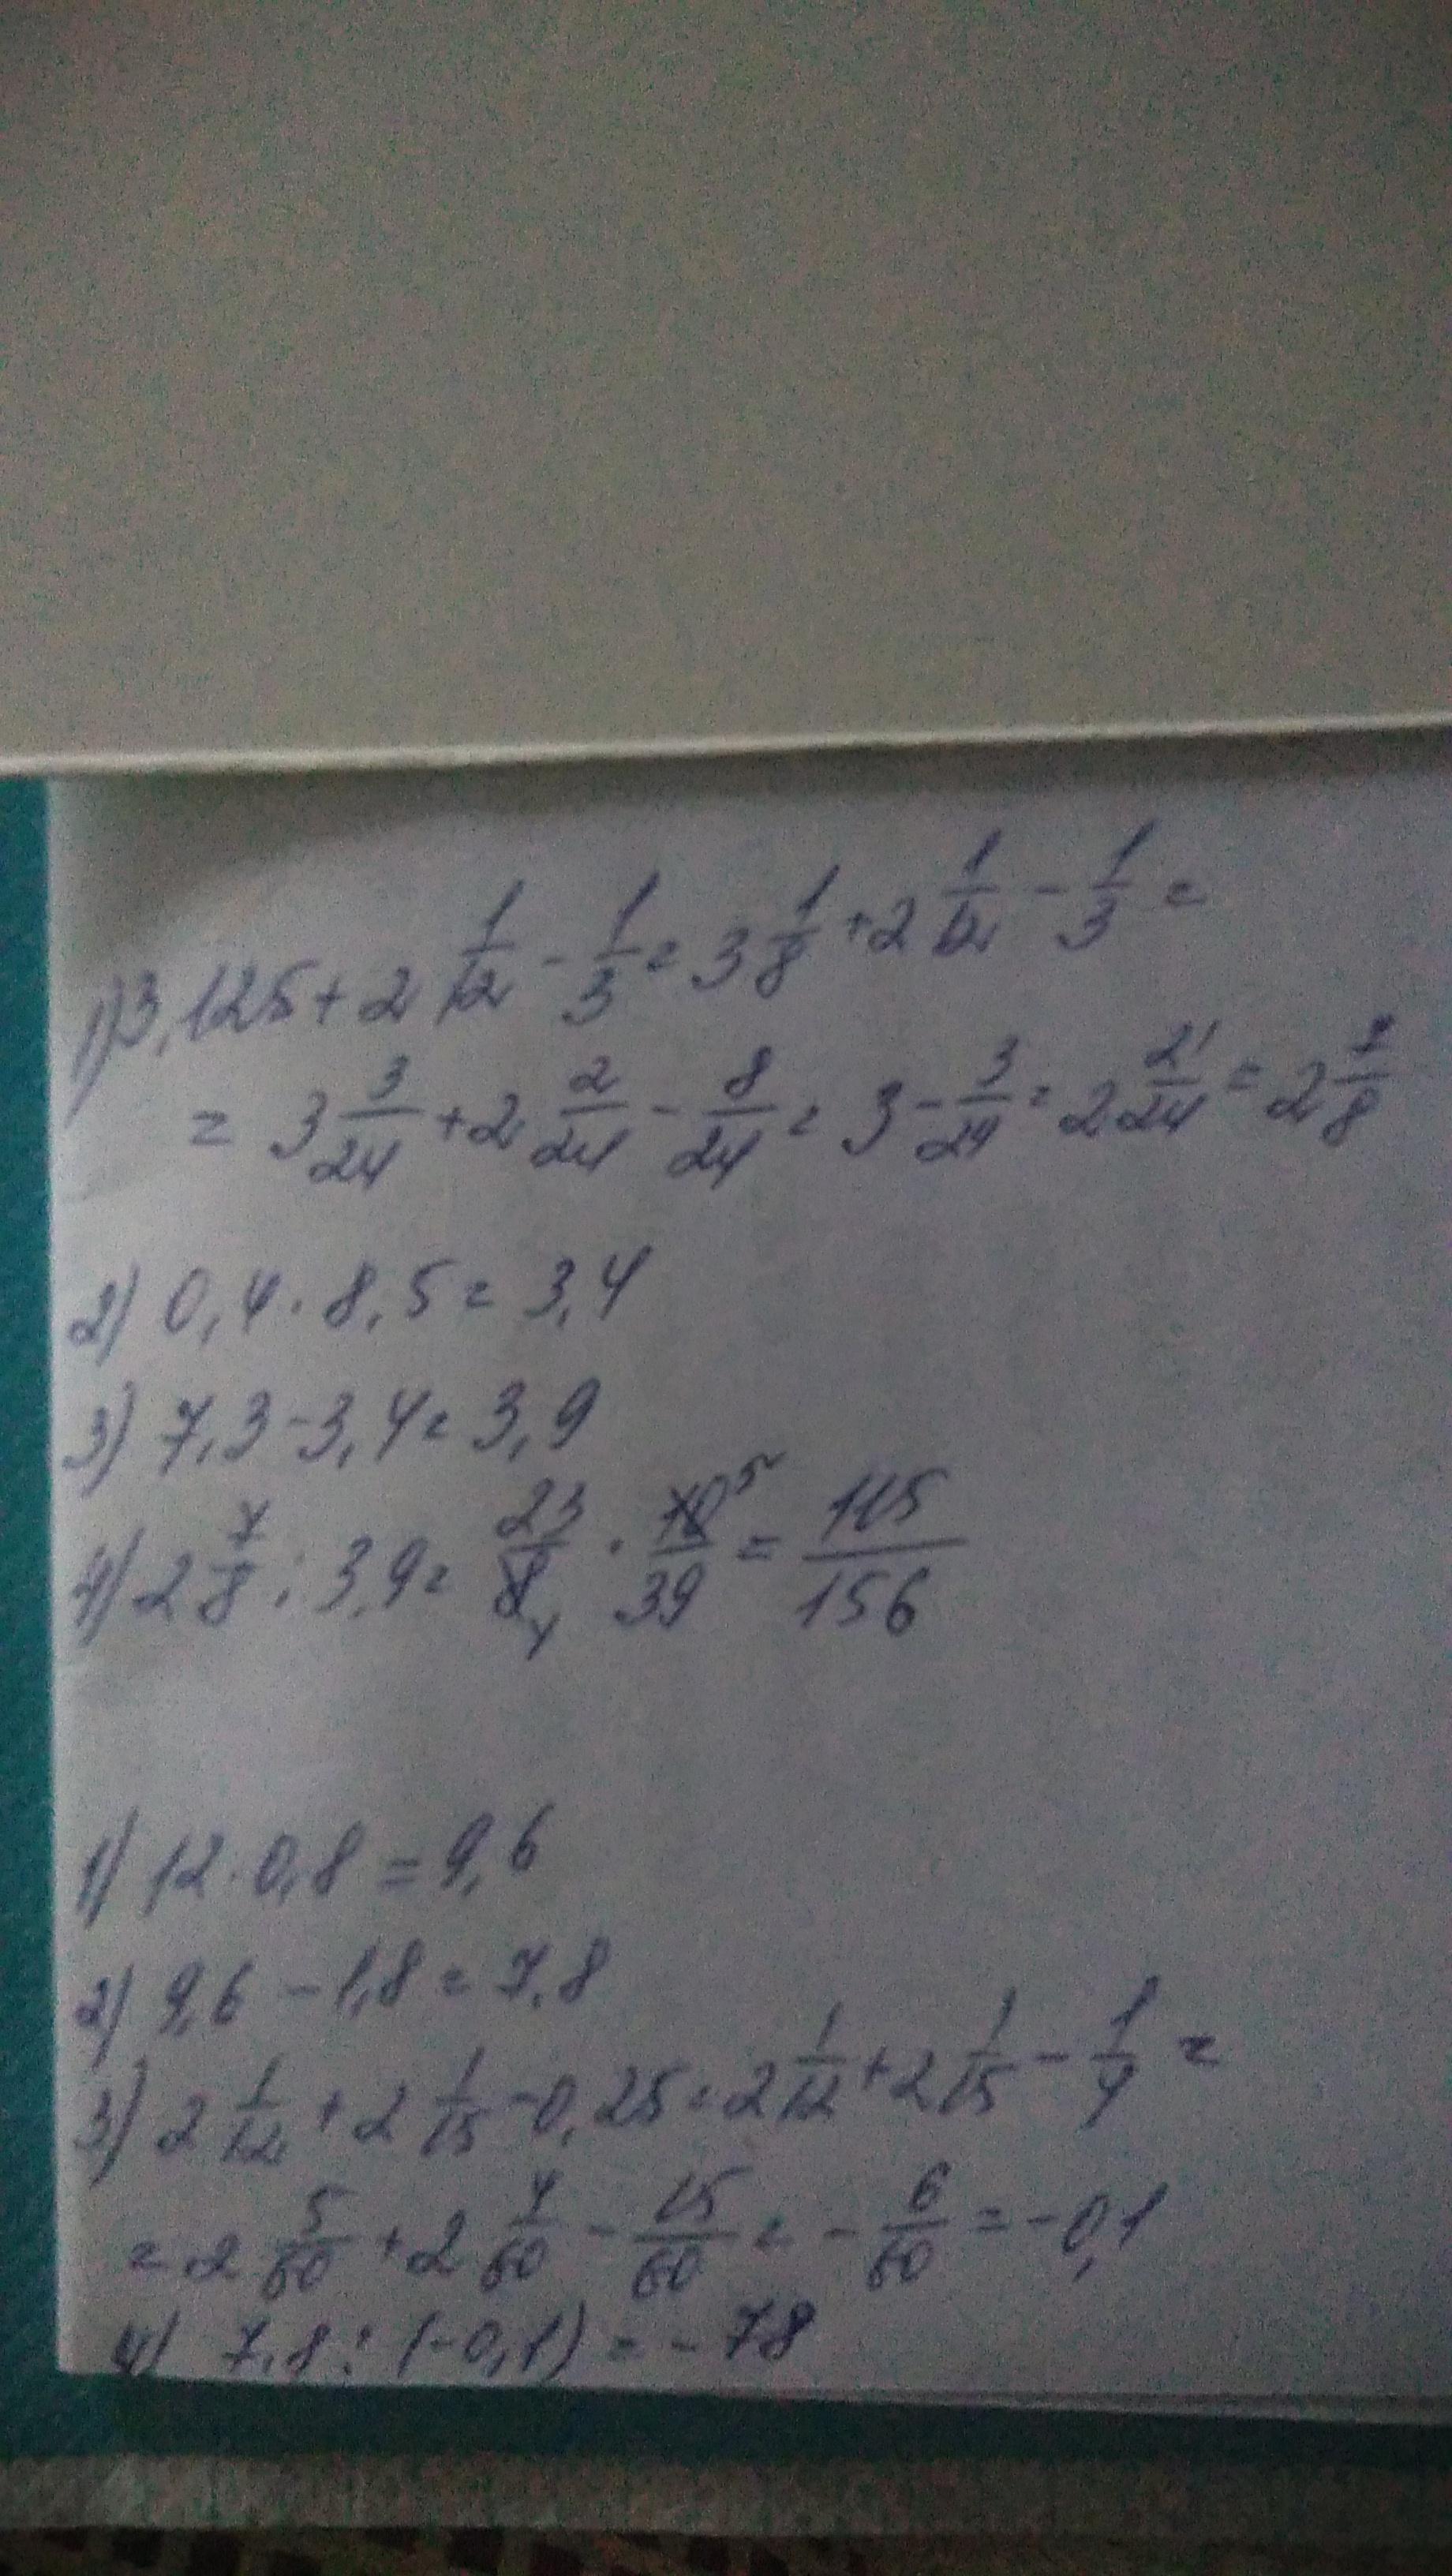 1) 3,125 + 2 1/12 - 1/3 = 3 1/8 + 2 1/12 - 1/3 =
= 3 3/24 + 2 2/24 - 8/24 = 3 - 3/24 = 2 21/24 = 2 7/8
2) 0,4 · 8,5 = 3,4
3) 7,3 - 3,4 = 3,9
4) 2 7/8 : 3,9 = 23/8 4 · 10 5/39 = 115/156
1) 12 · 0,8 = 9,6
2) 9,6 - 1,8 = 7,8
3) 2 1/12 + 2 1/15 - 0,25 = 2 1/12 + 2 1/15 - 1/4 =
= 2 5/60 + 2 4/60 - 15/60 = - 6/60 = -0,1
4) 7,8 : (-0,1) = - 78